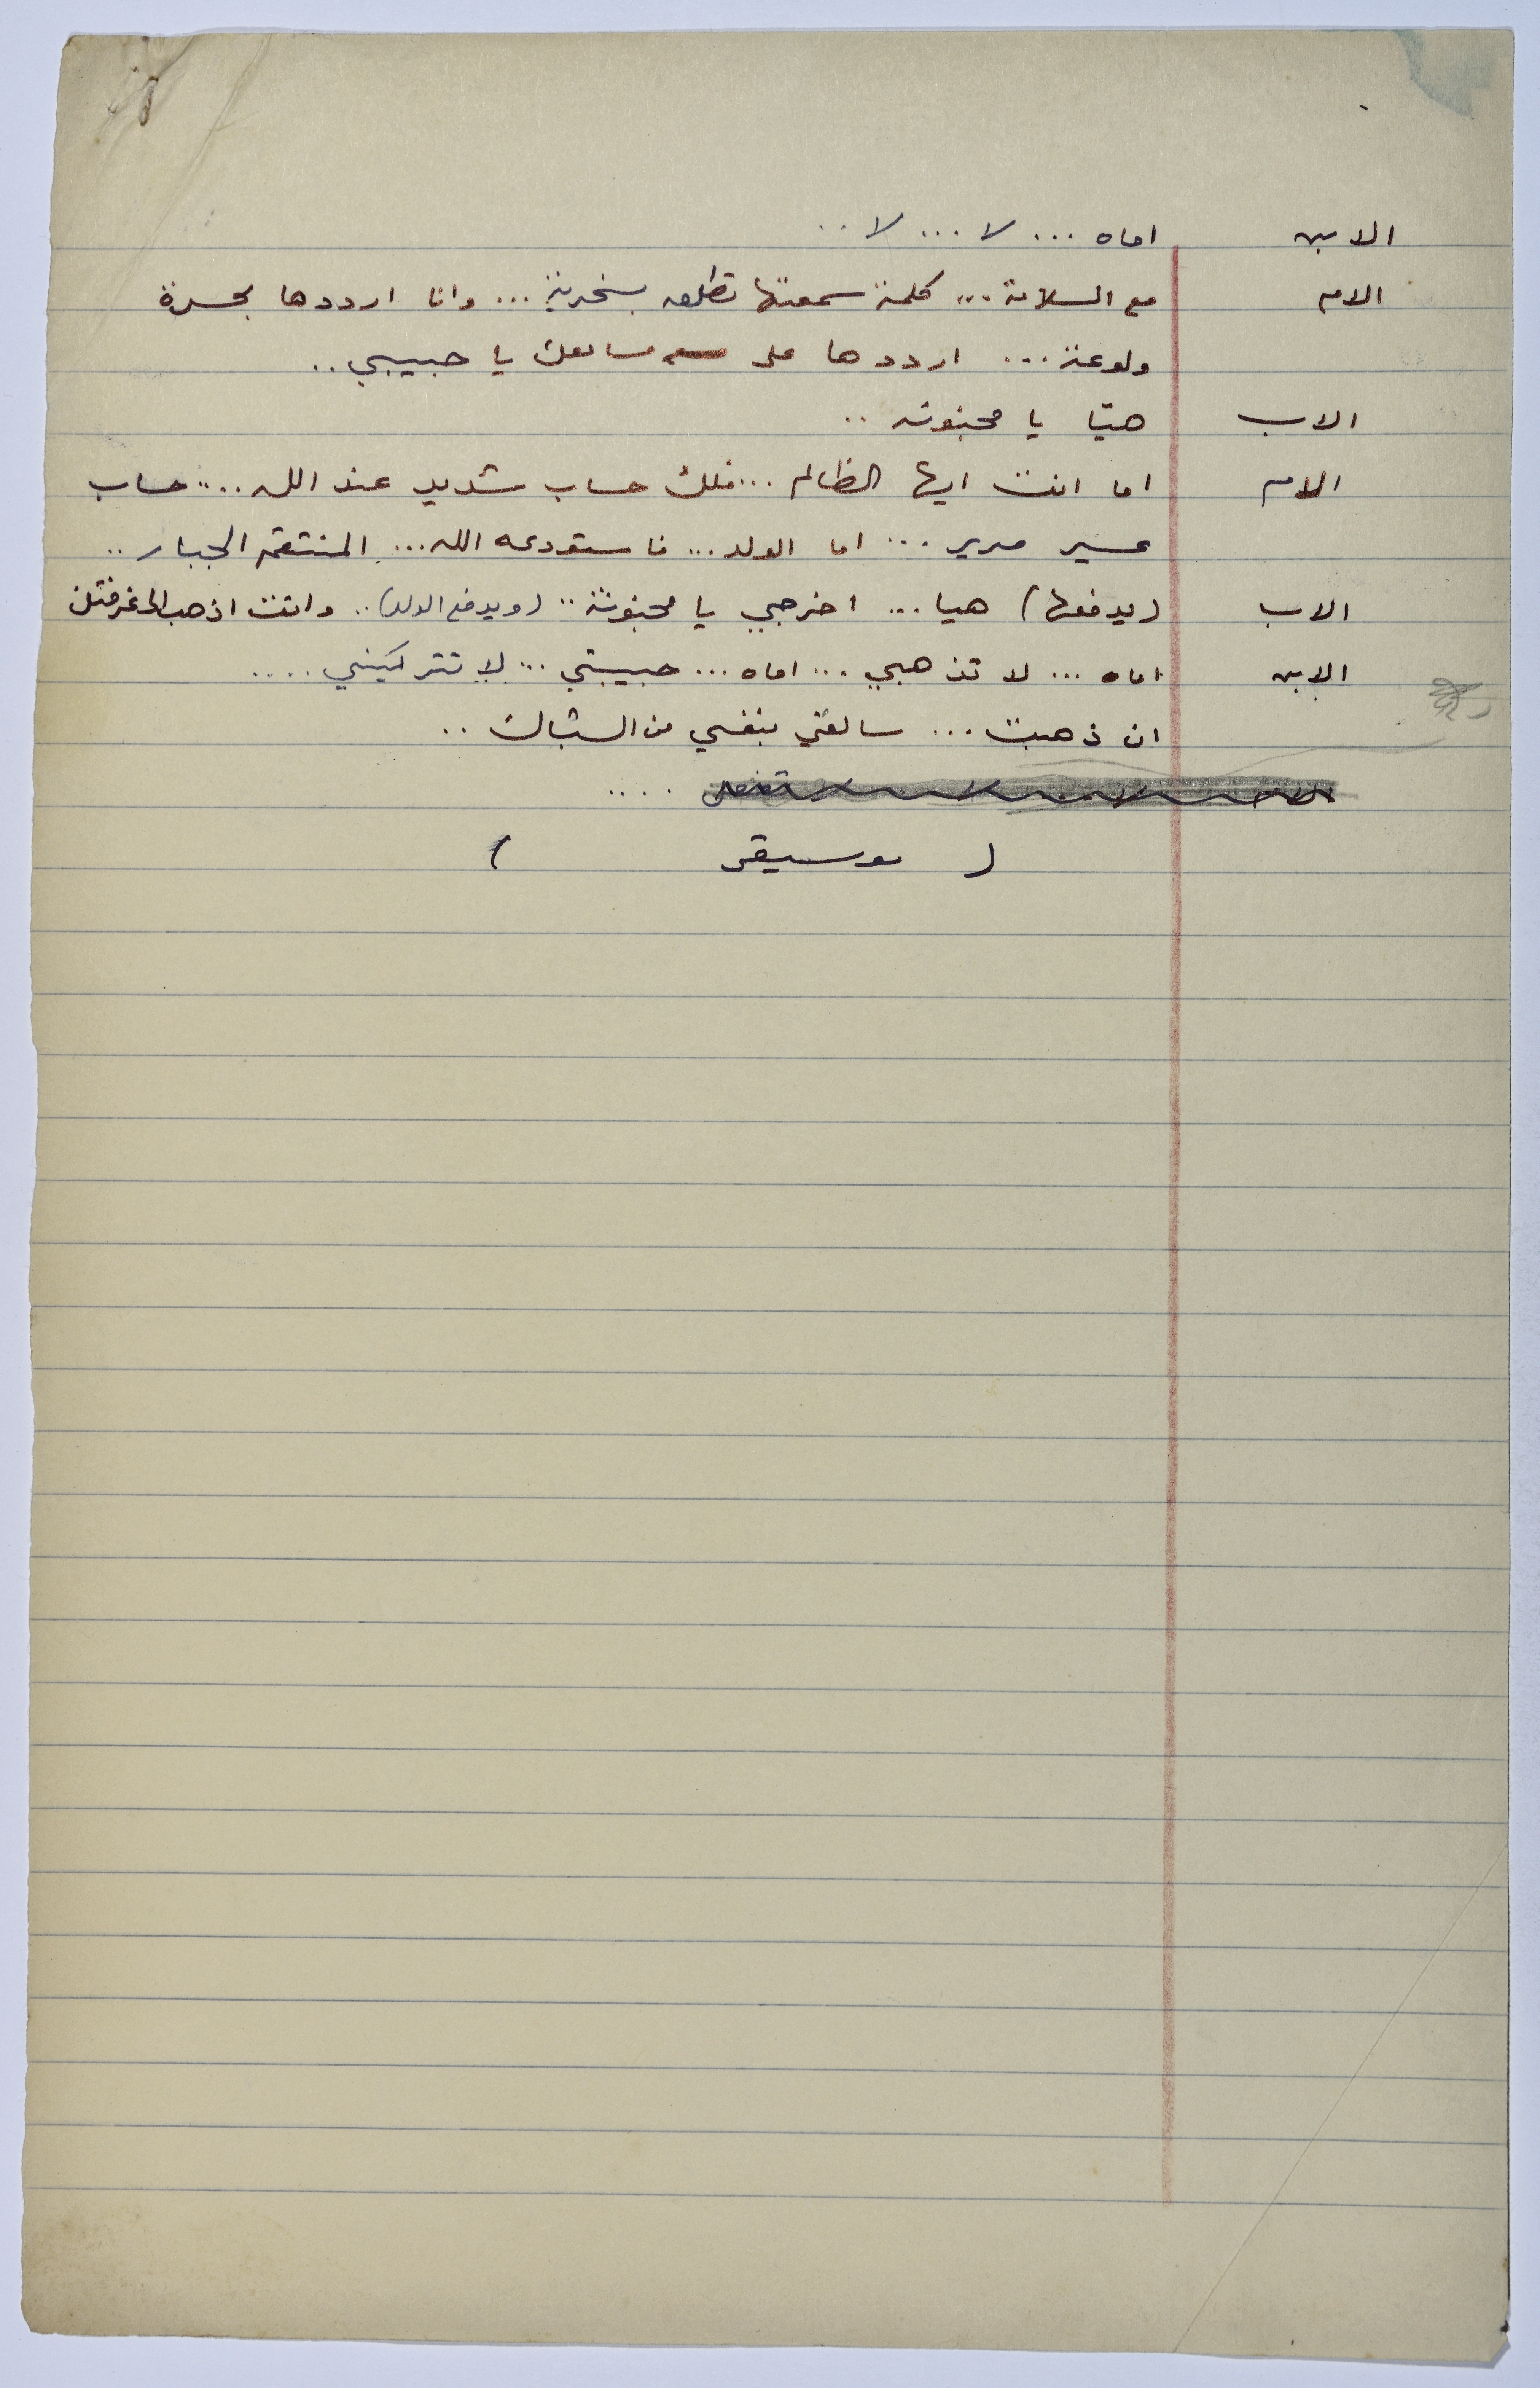 الابن اماه ... لا ... لا ..
الام مع السلامة ... كلمة سمعتها تطلق بسخرية ... وانا ارددها بحسرة
ولوعة ... ارددها على مسامعك يا حبيبي ..
الاب هيّا يا مجنونه ..
الام اما انت ايها الظالم ... فلك حساب شديد عند الله ... حساب
عسير مرير ... اما الولد ... فاستودعه الله ... المنتقم الجبار ..
الاب (يدفعها) هيا ... اخرجي يا مجنونة .. (ويدفع الولد) .. وانت اذهب الى غرفتك
الابن اماه ... لا تذهبي ... اماه ... حبيبتي ... لا تتركيني ....
ان ذهبت ... سالقي بنفسي من الشباك ..
....
( موسيقى )